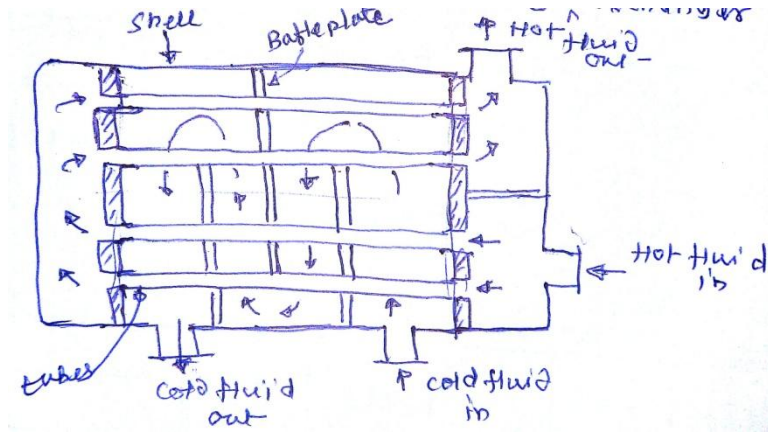 Shell
Bafleplate
Hot
fluid
out
Hot fluid
in
tubes
Cold fluid
out
cold fluid
in